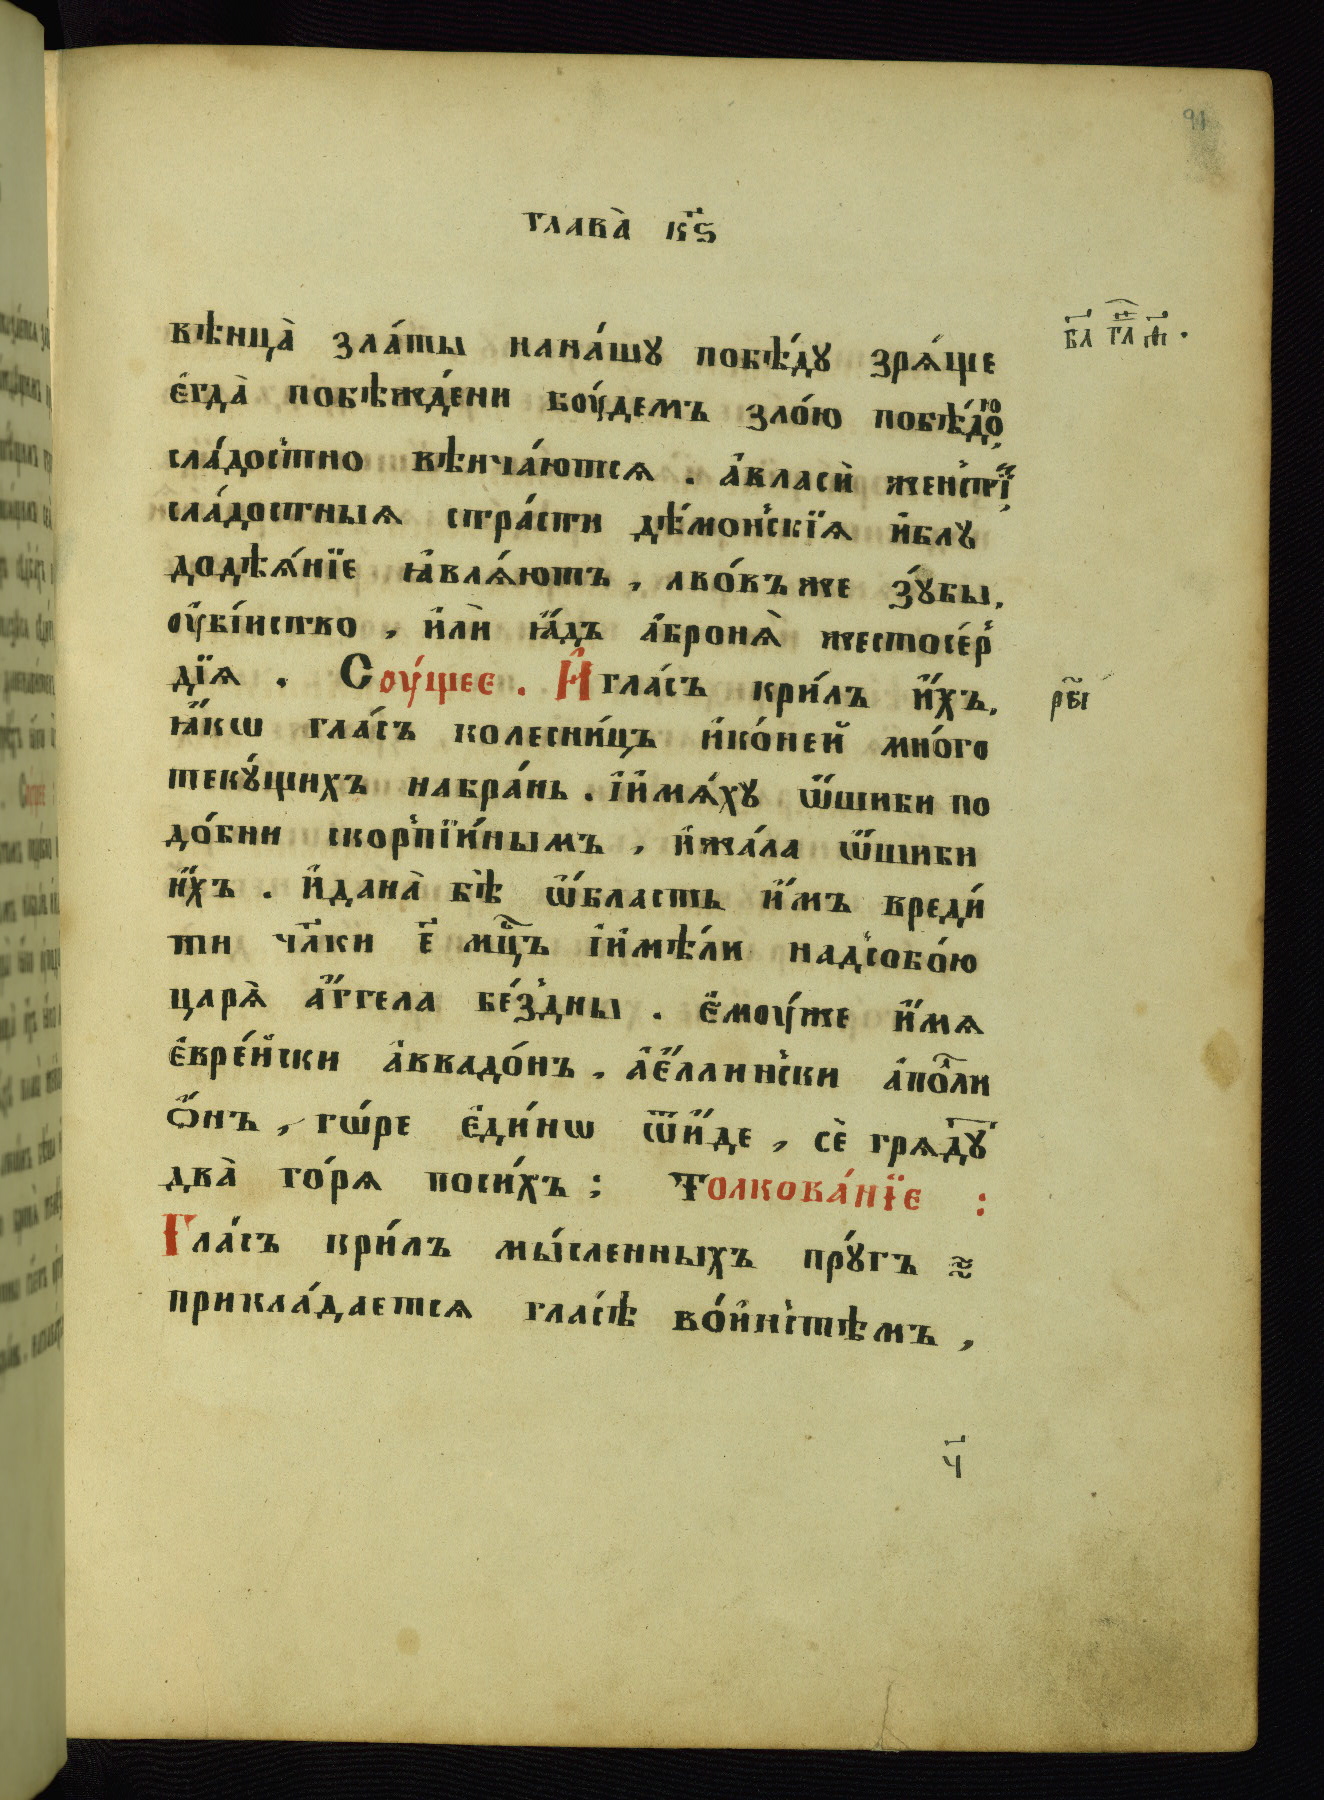 91
глава̀ к҃ѕ
вѣнца̀ зла́ты нана́шꙋ побѣ́дꙋ зрѧ́ще
є҆гда̀ побѣжде́ни боу́демъ зло́ю побѣ́дою,
сла́достно вѣнча́ютсѧ . а҆власѝ же́нстїи,
сла́достныѧ стра́сти дѣ́монскїѧ и҆блꙋ
додѣѧ́нїе ꙗ҆влѧ́ютъ , лво́въже зꙋ́бы,
оу҆бі́иство , и҆лѝ ꙗ҆́дъ а҆бронѧ̀ жестосе́р
дїѧ . Соу́щее . И҆гла́съ кри́лъ и҆́хъ,
ꙗ҆́кѡ гла́съ колесни́цъ и҆ко́ней мно́го
текꙋ́щихъ набра́нь . і҆и҆мѧ́хꙋ ѡ҆́шиби по
до́бни скорпїи́нымъ , и҆жа́ла ѡ҆́шиби
и҆́хъ . и҆дана̀ бѣ̀ ѡ҆́бласть и҆́мъ вреди́
ти чл҃ки е҃ мц҃ъ і҆и҆мѣ́ли надсобо́ю
царѧ̀ а҆́ггела бе́здны . є҆моу́же и҆́мѧ
є҆вре́йски а҆ввадо́нъ . а҆є҆́ллински а҆поли
ѻ҆́нъ , го́ре є҆ди́нѡ ѿи́де , сѐ грѧдꙋ́
два̀ го́рѧ поси́хъ ; Толкова́нїе :
Гла́съ кри́лъ мы́сленныхъ прꙋ́гъ
прикла́даетсѧ гла́сѣ во́инстѣмъ ,
рв҃і
ч҃